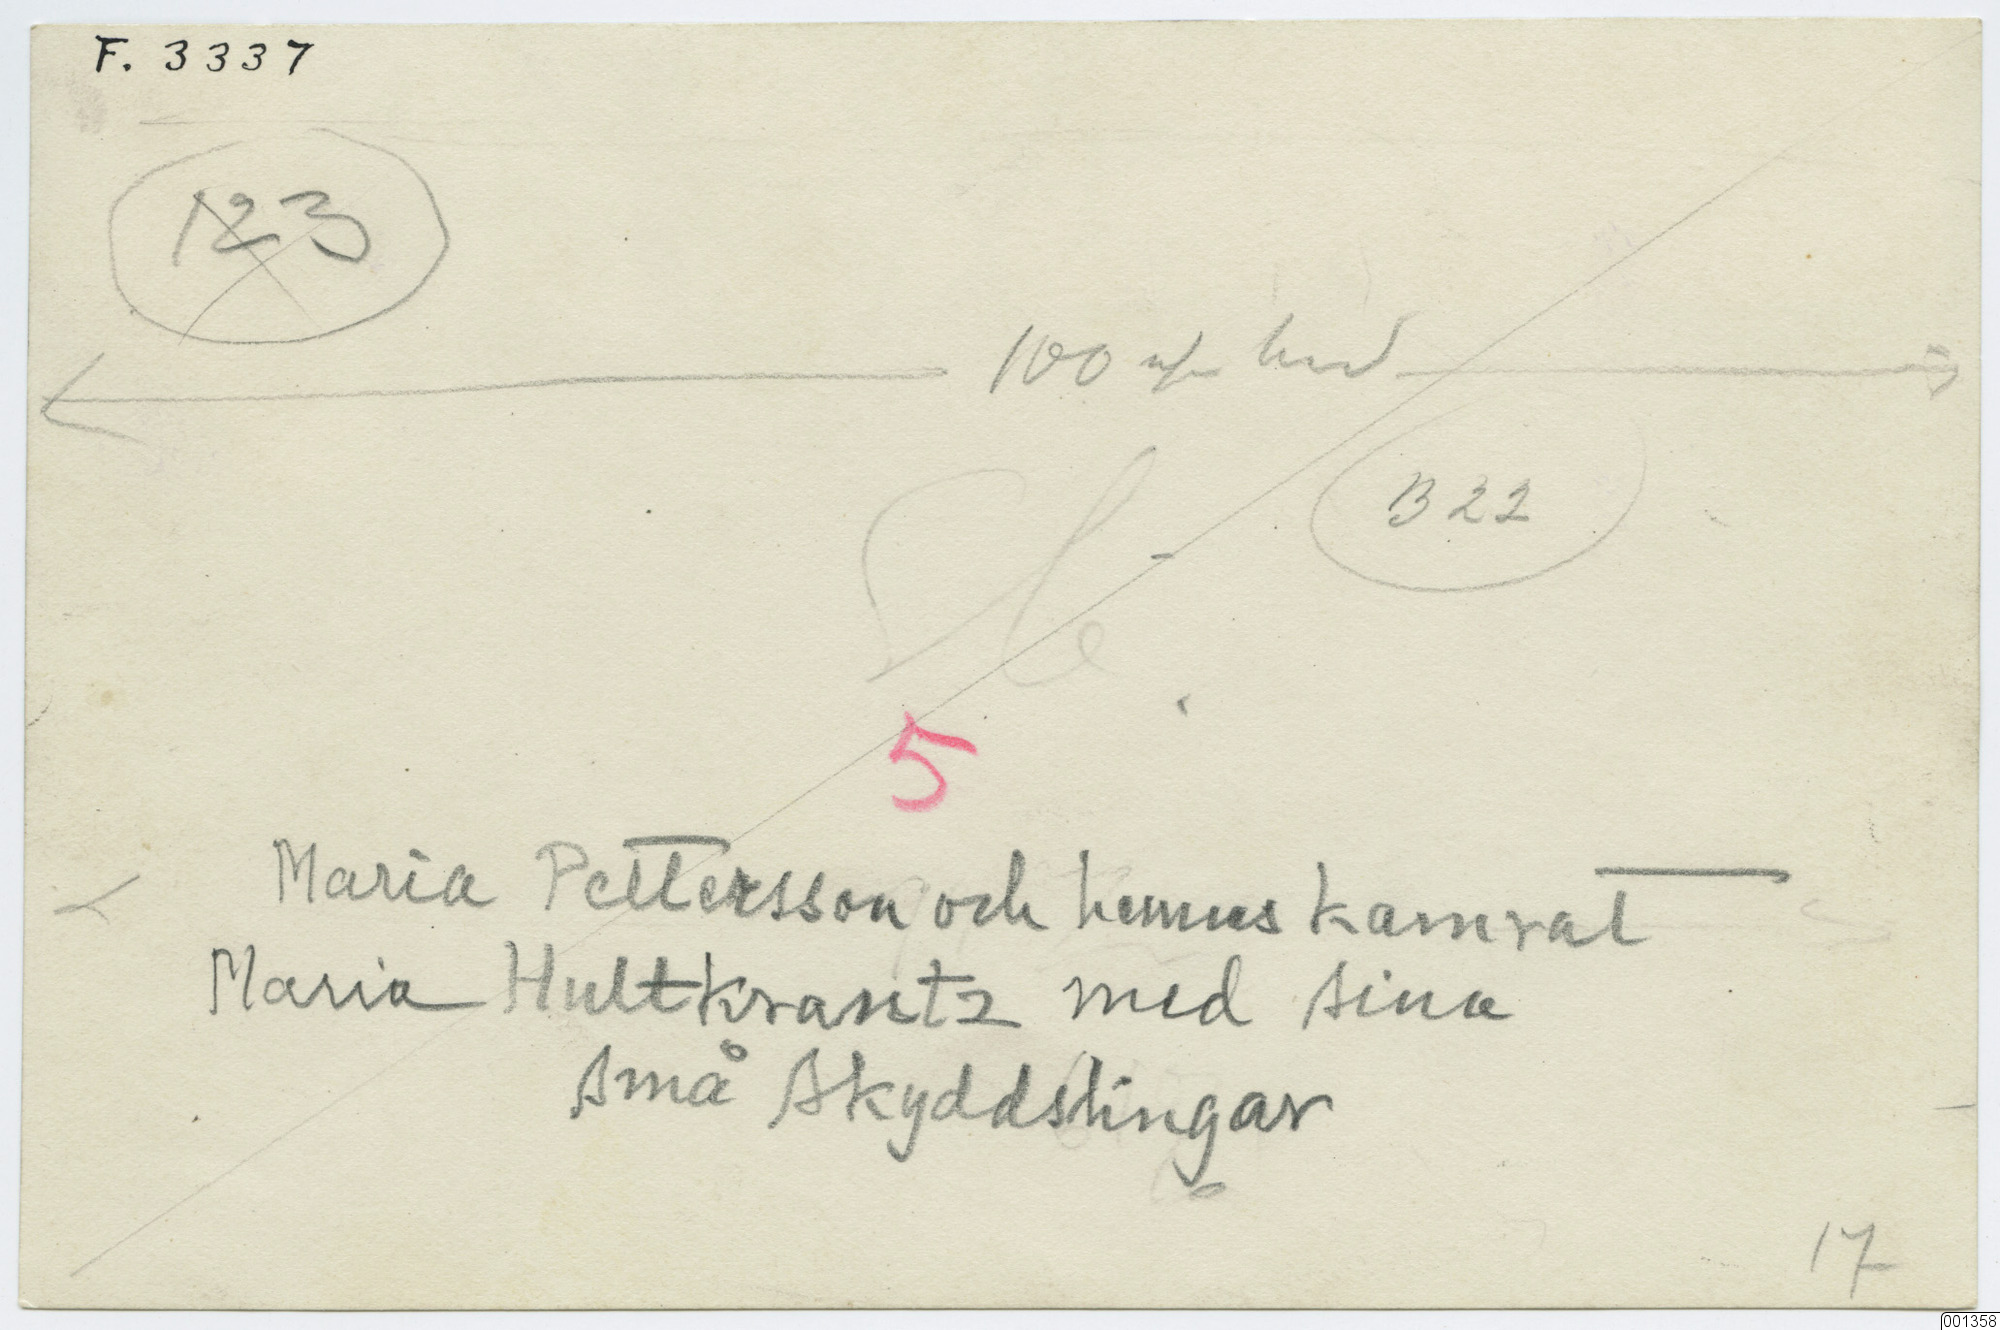 F. 3337
123
100 m/m bred
B 22
5
Maria Pettersson och hennes kamrat
Maria Hultkrantz med sina
små skyddslingar
17
001358